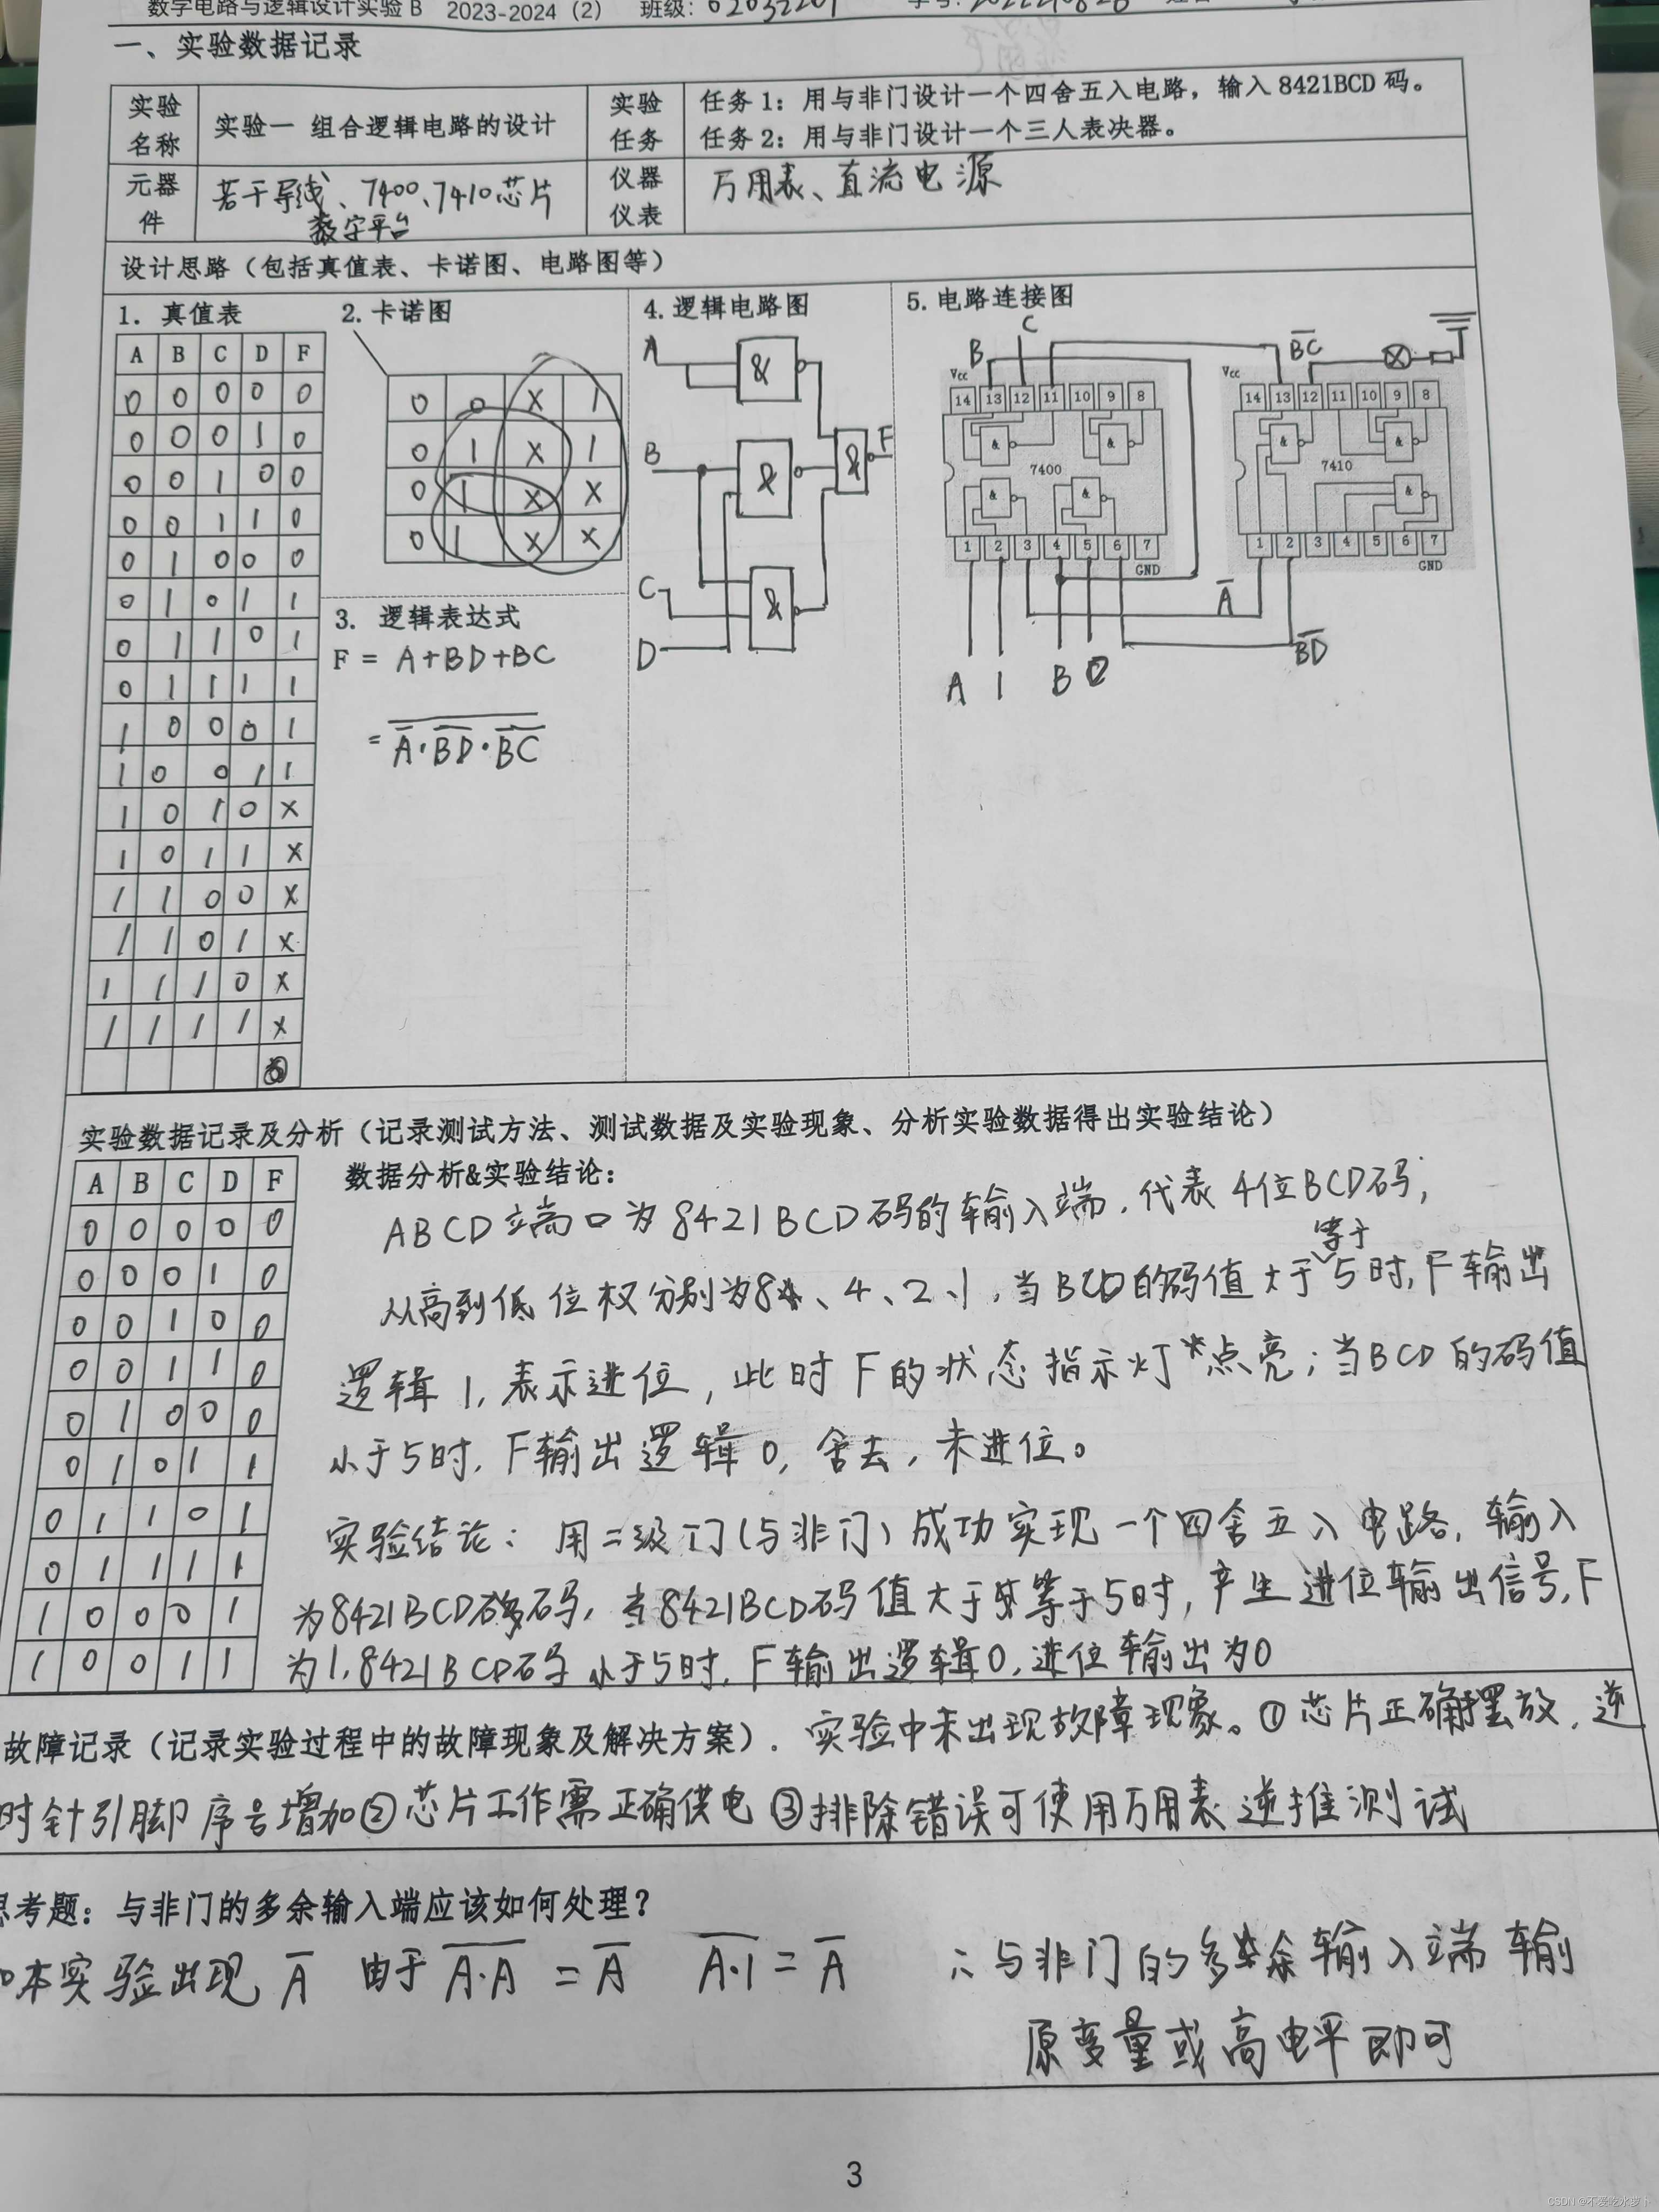 数字电路与逻辑设计实验 B 2023-2024（2） 班级：
一、实验数据记录
实验名称 实验一 组合逻辑电路的设计 实验任务 任务 1：用与非门设计一个四舍五入电路，输入 8421BCD 码。
任务 2：用与非门设计一个三人表决器。
元器件 若干导线、7400、7410芯片 仪器仪表 万用表、直流电源
数字平台
设计思路（包括真值表、卡诺图、电路图等）
1. 真值表
A B C D F
0 0 0 0 0
0 0 0 1 0
0 0 1 0 0
0 0 1 1 0
0 1 0 0 0
0 1 0 1 1
0 1 1 0 1
0 1 1 1 1
1 0 0 0 1
1 0 0 1 1
1 0 1 0 ×
1 0 1 1 ×
1 1 0 0 ×
1 1 0 1 ×
1 1 1 0 ×
1 1 1 1 ×
2. 卡诺图
0 0 × 1
0 1 × 1
0 1 × ×
0 1 × ×
3. 逻辑表达式
F = A+BD+BC
= \overline{\overline{A}·\overline{BD}·\overline{BC}}
4. 逻辑电路图
A &
B & & F
C &
D
5. 电路连接图
B C \overline{BC}
Vcc Vcc
14 13 12 11 10 9 8
14 13 12 11 10 9 8
& &
& &
7400 7410
& & &
1 2 3 4 5 6 7
1 2 3 4 5 6 7
GND GND
\overline{A} \overline{BD}
A 1 B
实验数据记录及分析（记录测试方法、测试数据及实验现象、分析实验数据得出实验结论）
A B C D F
0 0 0 0 0
0 0 0 1 0
0 0 1 0 0
0 0 1 1 0
0 1 0 0 0
0 1 0 1 1
0 1 1 0 1
0 1 1 1 1
1 0 0 0 1
1 0 0 1 1
数据分析&实验结论：
ABCD端口为8421BCD码的输入端，代表4位BCD码；
从高到低位权分别为8、4、2、1，当BCD的码值大于等于5时，F输出
逻辑1，表示进位，此时F的状态指示灯点亮；当BCD的码值
小于5时，F输出逻辑0，舍去，未进位。
实验结论：用二级门（与非门）成功实现一个四舍五入电路，输入
为8421BCD码，当8421BCD码值大于等于5时，产生进位输出信号，F
为1，8421BCD码小于5时，F输出逻辑0，进位输出为0
故障记录（记录实验过程中的故障现象及解决方案）．实验中未出现故障现象。①芯片正确摆放，逆
时针引脚序号增加②芯片工作需正确供电③排除错误可使用万用表逆推测试
思考题：与非门的多余输入端应该如何处理？
本实验出现 \overline{A} 由于 \overline{A·A} = \overline{A} \overline{A·1} = \overline{A} ∴与非门的多余输入端输
原变量或高电平即可
3
CSDN @不爱吃水萝卜